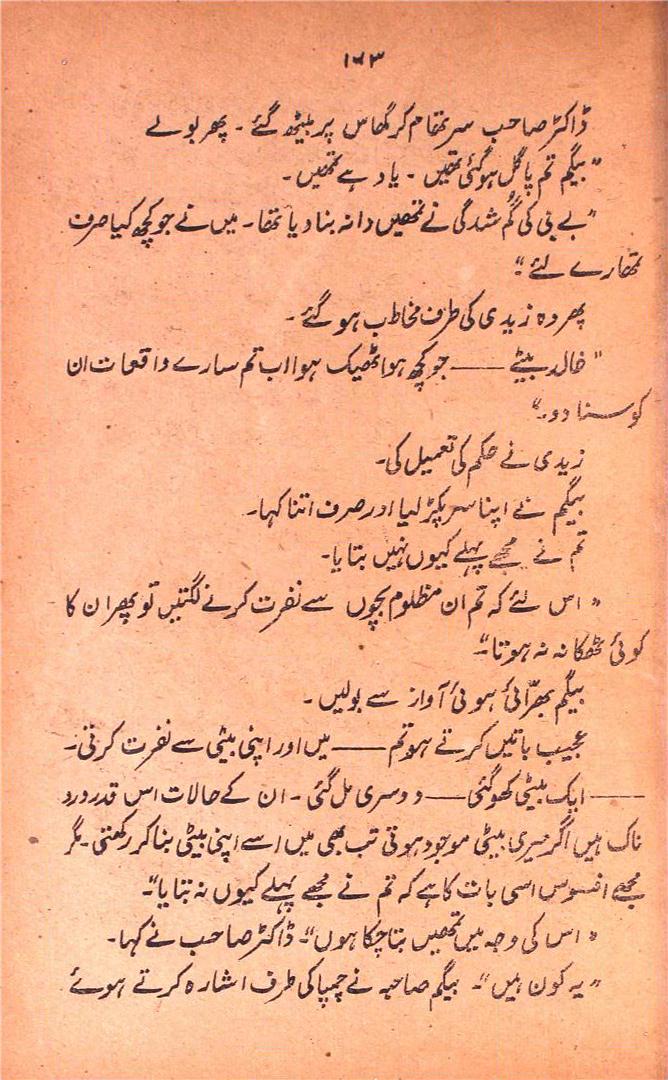 ۱۶۳
ڈاکٹر صاحب سر تھام کر گھاس پر بیٹھ گئے ۔ پھر بولے
"بیگم تم پاگل ہو گئی تھیں ۔ یاد ہے تمھیں ۔
"بے بی کی گُم شدگی نے تمھیں دانہ بنا دیا تھا ۔ میں نے جو کچھ کیا صرف
تمھارے لئے"
پھر وہ زیدی کی طرف مخاطب ہو گئے ۔
"خالد بیٹے —— جو کچھ ہوا ٹھیک ہوا اب تم سارے واقعات ان
کو سنا دو ۔"
زیدی نے حکم کی تعمیل کی ۔
بیگم نے اپنا سر پکڑ لیا اور صرف اتنا کہا ۔
تم نے مجھے پہلے کیوں نہیں بتایا ۔
"اس لئے کہ تم ان مظلوم بچوں سے نفرت کرنے لگتیں تو پھر ان کا
کوئی ٹھکانہ نہ ہوتا ۔"
بیگم بھرّائی ہوئی آواز سے بولیں ۔
عجیب باتیں کرتے ہو تم —— میں اور اپنی بیٹی سے نفرت کرتی ۔
—— ایک بیٹی کھو گئی —— دوسری مل گئی ۔ ان کے حالات اس قدر درد
ناک ہیں اگر میری بیٹی موجود ہوتی تب بھی میں اسے اپنی بیٹی بنا کر رکھتی ۔ مگر
مجھے افسوس اسی بات کا ہے کہ تم نے مجھے پہلے کیوں نہ بتایا" ۔
"اس کی وجہ میں تمھیں بتا چکا ہوں" ۔ ڈاکٹر صاحب نے کہا ۔
"یہ کون ہیں" ۔ بیگم صاحبہ نے چمپا کی طرف اشارہ کرتے ہوئے